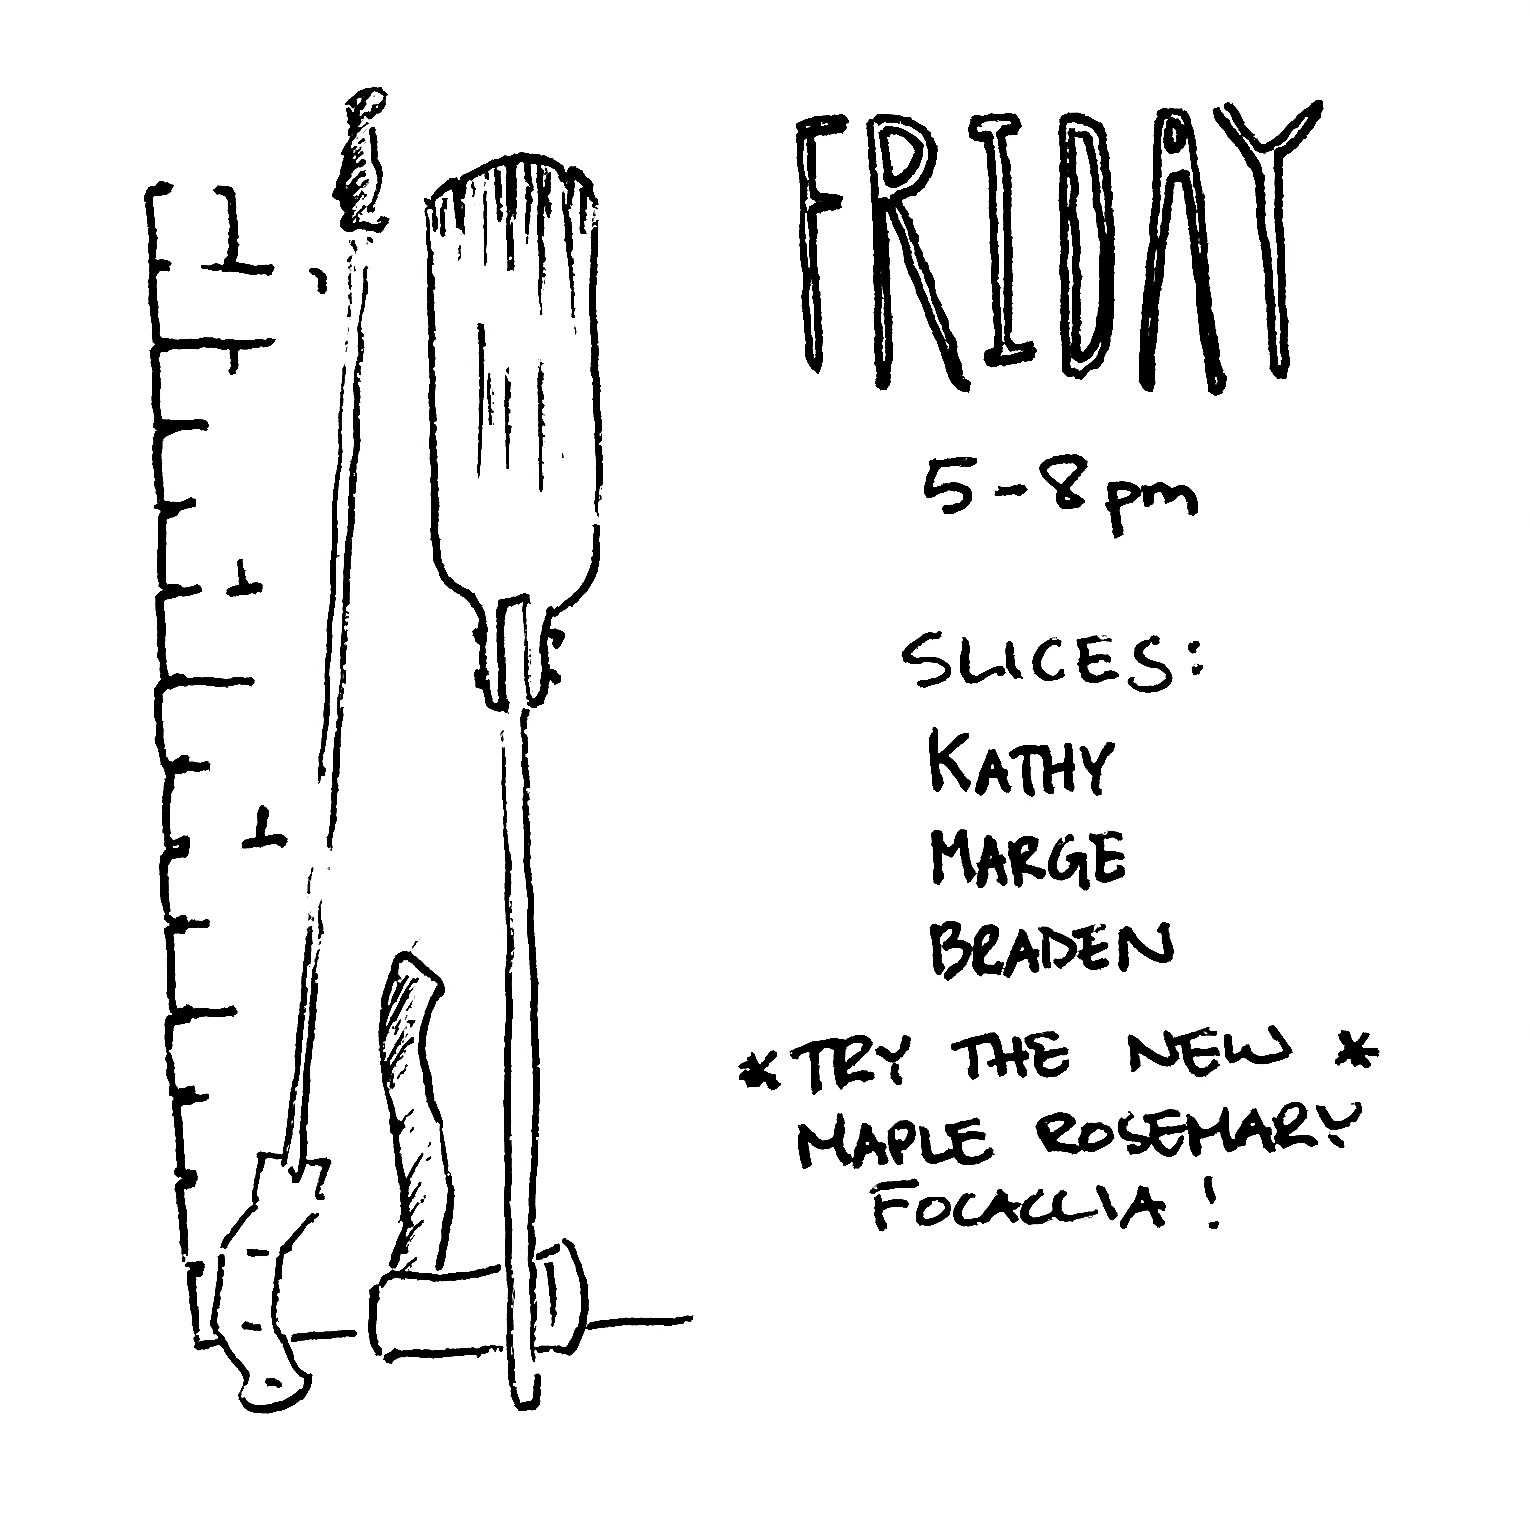 FRIDAY
5-8pm
SLICES:
KATHY
MARGE
BRADEN
*TRY THE NEW*
MAPLE ROSEMARY
FOCACCIA!